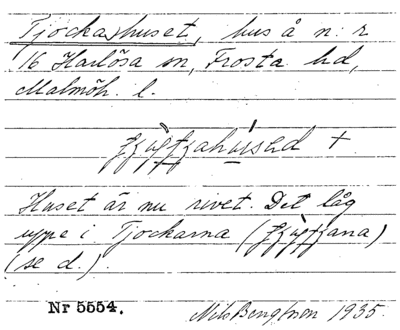 Tjockahuset, hus å n:r
16 Harlösa sn, Frosta hd,
Malmöh. l.
Huset är nu rivet. Det låg
uppe i Tjockarna
(se d.).
Nr 5554. Nils Bengtsson 1935.